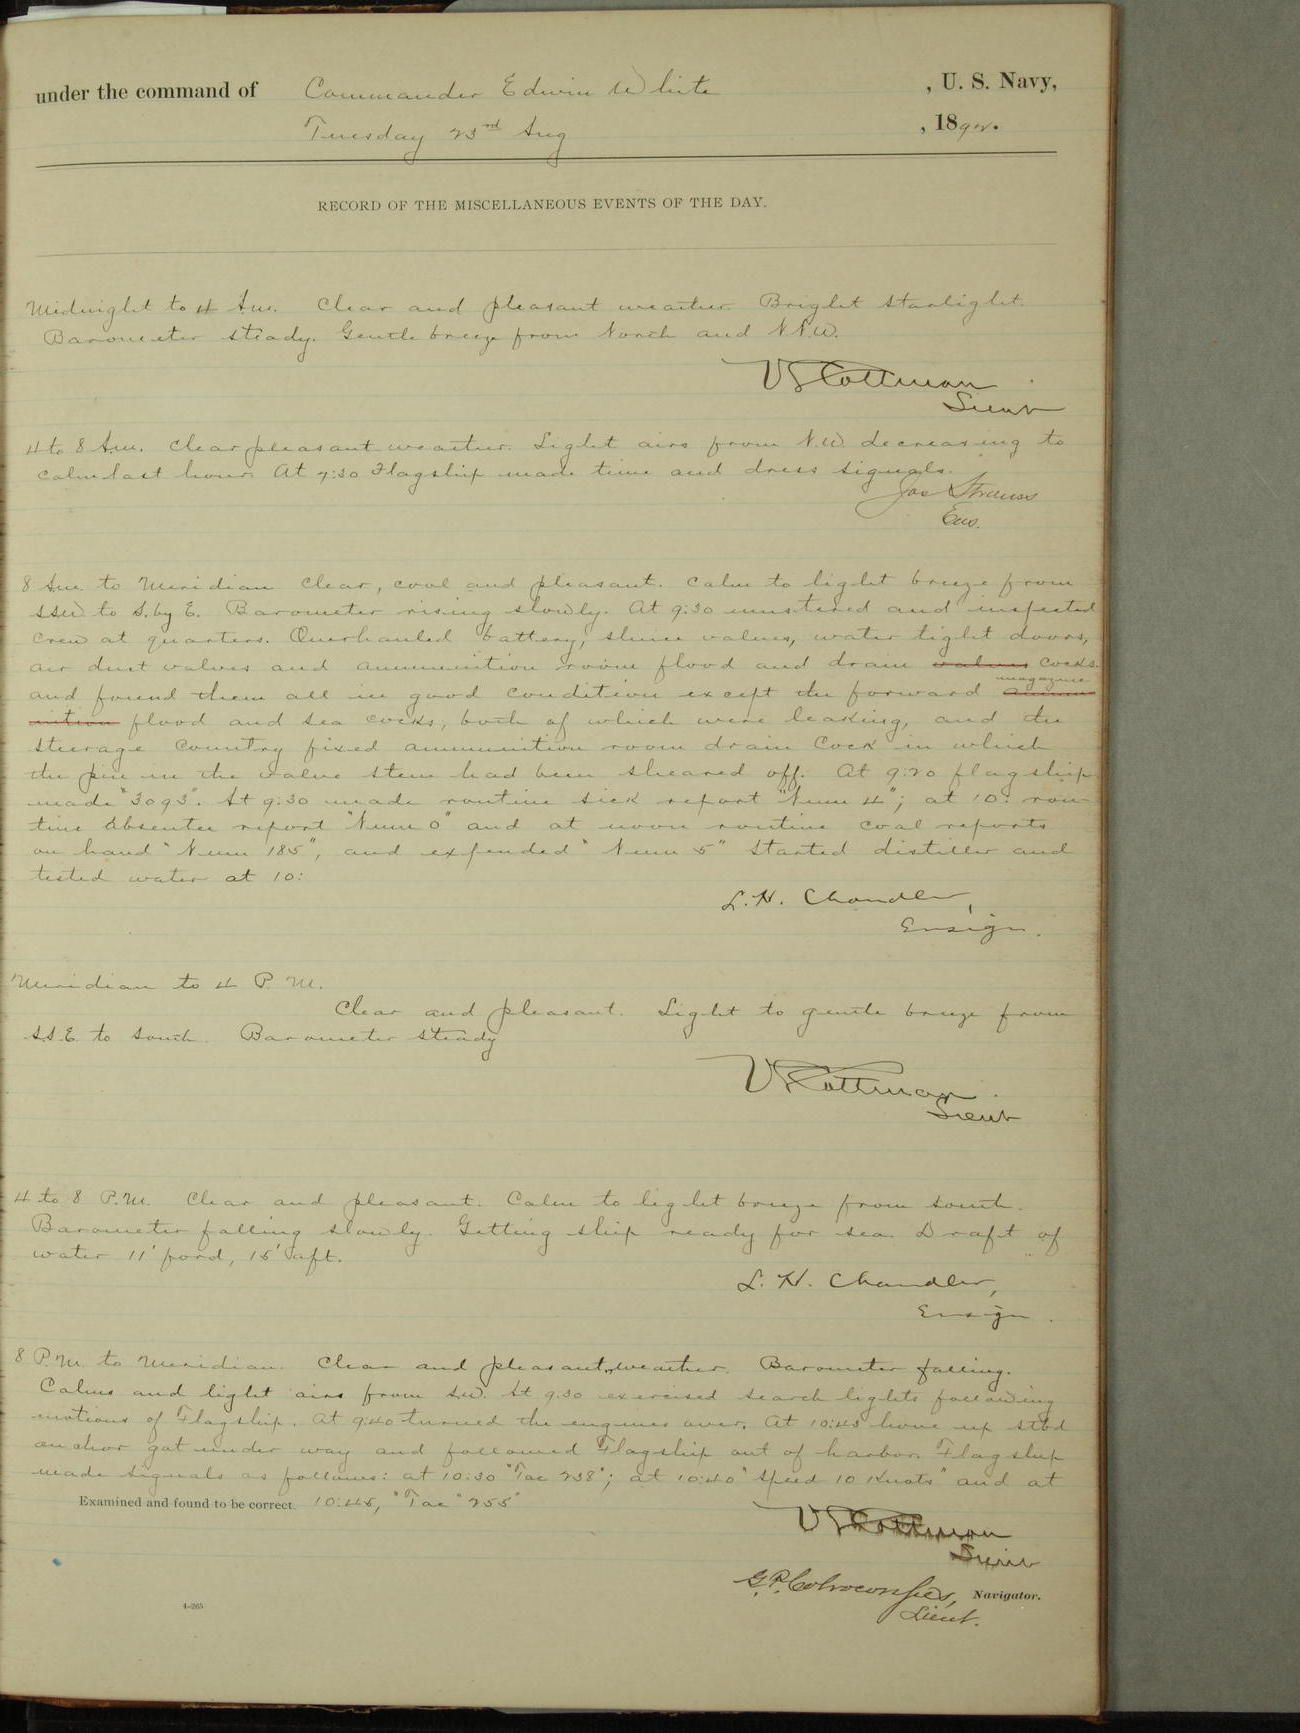 under the command of Commander Edwin White , U. S. Navy,
Tuesday 23rd Aug , 1892.
RECORD OF THE MISCELLANEOUS EVENTS OF THE DAY.
Midnight to 4 Am. Clear and pleasant weather. Bright starlight.
Barometer steady. Gentle breeze from North and N.N.W.
V S Cottman
Lieut
4 to 8 Am. Clear pleasant weather. Light airs from N.W. decreasing to
calm last hour. At 7:30 Flagship made time and dress signals.
Jos Strauss
Ens.
8 Am. to Meridian Clear, cool and pleasant. Calm to light breeze from
SSW to S. by E. Barometer rising slowly. At 9:30 mustered and inspected
crew at quarters. Overhauled battery, sluice valves, water tight doors,
air duct valves and ammunition room flood and drain valves cocks.
and found them all in good condition except the forward magazine ammu-
nition flood and sea cocks, both of which were leaking, and the
steerage country fixed ammunition room drain cock in which
the pin in the valve stem had been sheared off. At 9:20 flagship
made "3093". At 9:30 made routine sick report "Num 4"; at 10: rou-
tine absentee report "Num 0" and at noon routine coal reports
on hand "Num 185", and expended "Num 5" Started distiller and
tested water at 10:
L. H. Chandler,
Ensign.
Meridian to 4 P. M.
Clear and pleasant. Light to gentle breeze from
S.S.E. to South. Barometer steady
V S Cottman
Lieut
4 to 8 P.M. Clear and pleasant. Calm to light breeze from south.
Barometer falling slowly. Getting ship ready for sea. Draft of
water 11' ford, 15' aft.
L. H. Chandler,
Ensign.
8 P.M. to Meridian. Clear and pleasant weather. Barometer falling.
Calms and light airs from S.W. At 9.30 exercised search lights following
motions of Flagship. At 9:40 turned the engines over. At 10:45 hove up stbd
anchor got under way and followed Flagship out of harbor. Flagship
made signals as follows: at 10:30 "Tac 238"; at 10:40 "Speed 10 Knots" and at
Examined and found to be correct. 10:45, "Tac" 255"
V S Cottman
Lieut
Navigator.
Lieut.
4—265